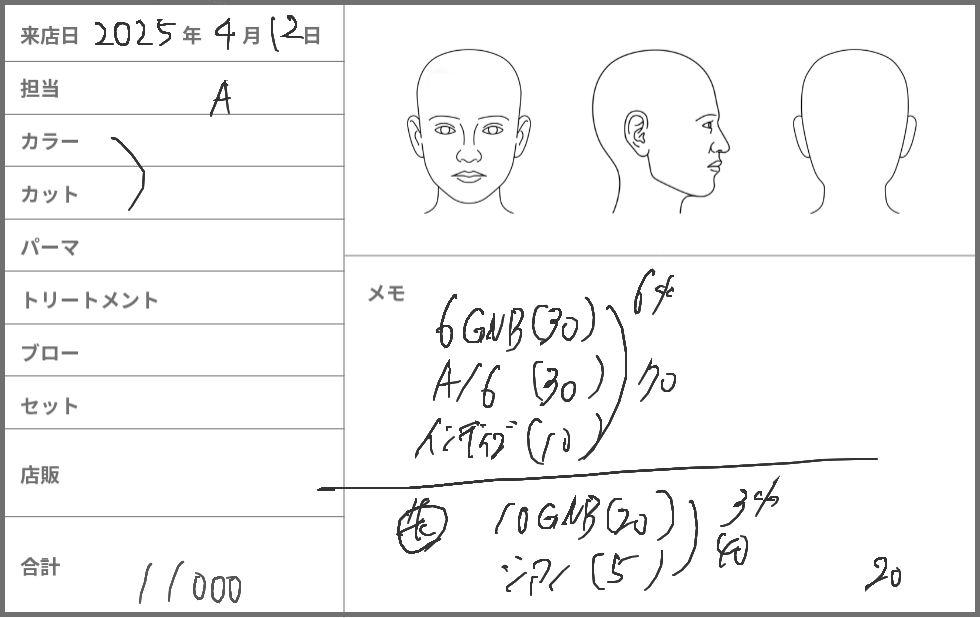 来店日 2025年 4月 12日
担当 A
カラー
カット
パーマ
トリートメント
ブロー
セット
店販
合計 11000
メモ
6GNB(30) 6%
A/6 (30) 70
インディゴ(10)
10GNB(20) 3%
シアン(5) 40
20